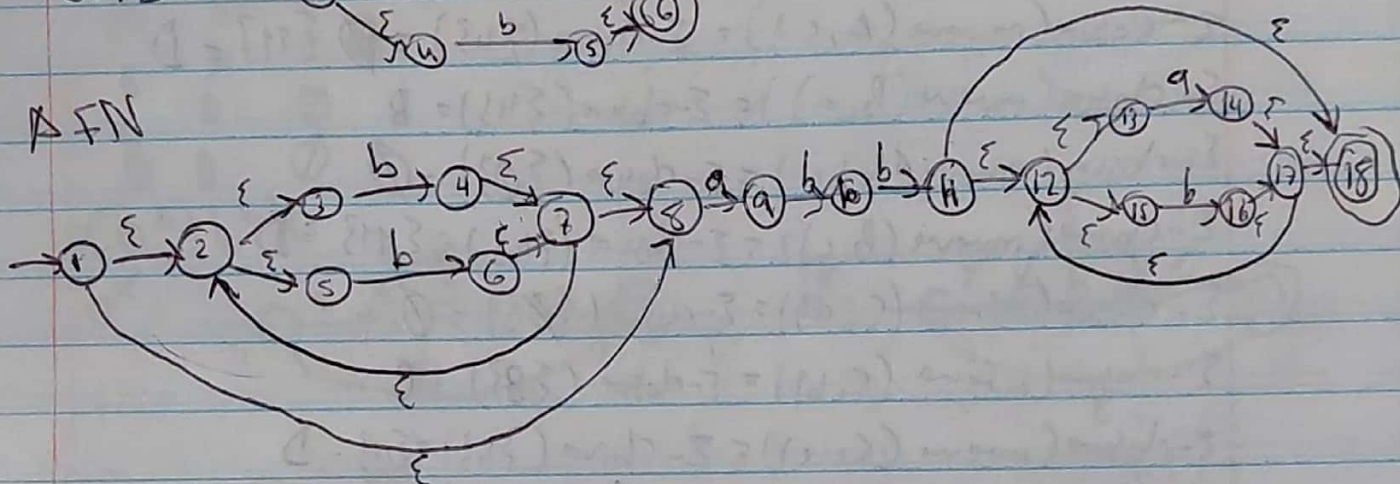 ε 4 b 5 ε 6
AFN
1 ε 2 ε 3 b 4 ε 7 ε 8 a 9 b 10 b 11 ε 12 ε 13 a 14 ε 17 ε 18
ε 5 b 6 ε
ε 15 b 16 ε
ε
ε
ε
ε